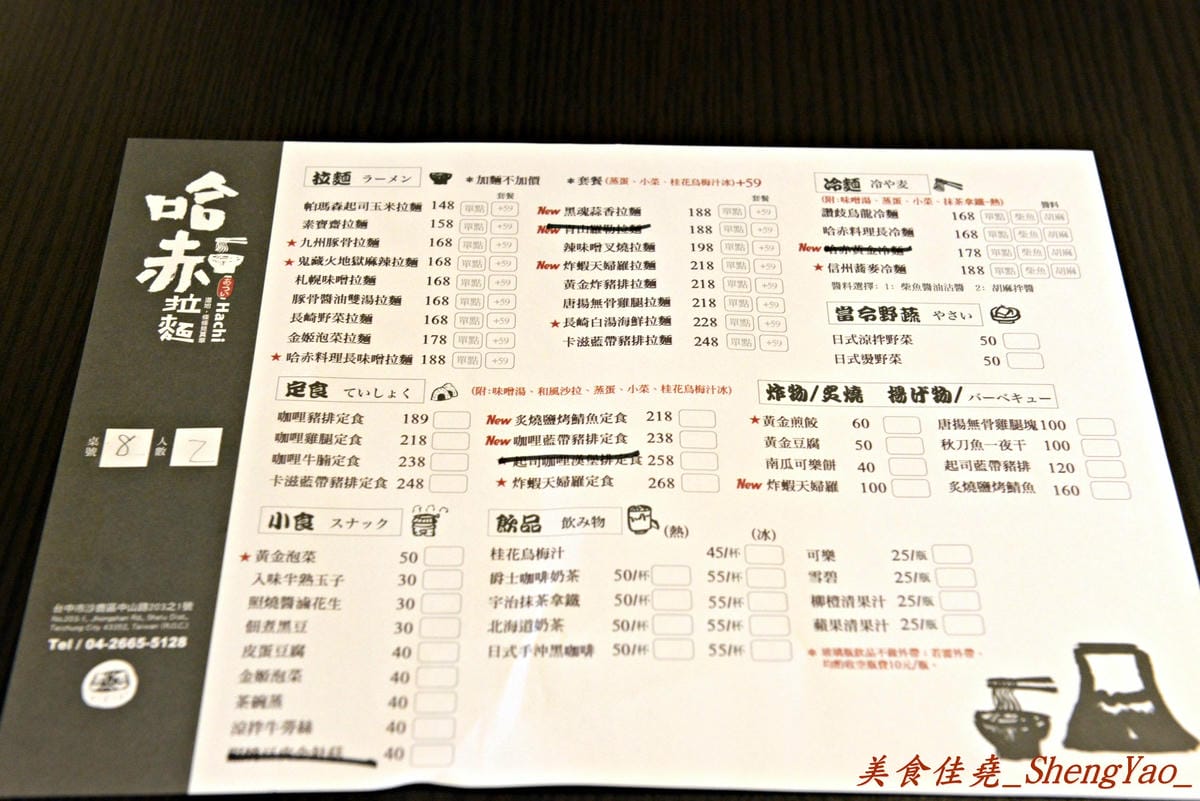 哈赤
拉麵
あつい
Hachi
桌號 8 人數 2
No.203-1, Jhongshan Rd., Shalu Dist.,
Taichung City 43352, Taiwan (R.O.C.)
Tel / 04-2665-5128
拉麵 ラーメン *加麵不加價 *套餐(蒸蛋、小菜、桂花烏梅汁冰)+59
套餐
帕瑪森起司玉米拉麵 148 單點 +59
素寶齋拉麵 158 單點 +59
★九州豚骨拉麵 168 單點 +59
★鬼藏火地獄麻辣拉麵 168 單點 +59
札幌味噌拉麵 168 單點 +59
豚骨醬油雙湯拉麵 168 單點 +59
長崎野菜拉麵 168 單點 +59
金姬泡菜拉麵 178 單點 +59
★哈赤料理長味噌拉麵 188 單點 +59
套餐
New 黑魂蒜香拉麵 188 單點 +59
New 188 單點 +59
辣味噌叉燒拉麵 198 單點 +59
New 炸蝦天婦羅拉麵 218 單點 +59
黃金炸豬排拉麵 218 單點 +59
唐揚無骨雞腿拉麵 218 單點 +59
★長崎白湯海鮮拉麵 228 單點 +59
卡滋藍帶豬排拉麵 248 單點 +59
冷麵 冷や麦
(附:味噌湯、蒸蛋、小菜、抹茶拿鐵-熱) 醬料
讚歧烏龍冷麵 168 單點 柴魚 胡麻
哈赤料理長冷麵 168 單點 柴魚 胡麻
New 哈赤黃金冷麵 178 單點 柴魚 胡麻
★信州蕎麥冷麵 188 單點 柴魚 胡麻
醬料選擇: 1: 柴魚醬油沾醬 2: 胡麻拌醬
當令野蔬 やさい
日式涼拌野菜 50
日式燙野菜 50
定食 ていしょく (附:味噌湯、和風沙拉、蒸蛋、小菜、桂花烏梅汁冰)
咖哩豬排定食 189
咖哩雞腿定食 218
咖哩牛腩定食 238
卡滋藍帶豬排定食 248
New 炙燒鹽烤鯖魚定食 218
New 咖哩藍帶豬排定食 238
★起司咖哩漢堡排定食 258
★炸蝦天婦羅定食 268
炸物/炙燒 揚げ物/バーベキュー
★黃金煎餃 60
黃金豆腐 50
南瓜可樂餅 40
New 炸蝦天婦羅 100
唐揚無骨雞腿塊 100
秋刀魚一夜干 100
起司藍帶豬排 120
炙燒鹽烤鯖魚 160
小食 スナック
★黃金泡菜 50
入味半熟玉子 30
照燒醬滷花生 30
佃煮黑豆 30
皮蛋豆腐 40
金姬泡菜 40
茶碗蒸 40
涼拌牛蒡絲 40
40
飲品 飲み物 (熱) (冰)
桂花烏梅汁 45/杯
爵士咖啡奶茶 50/杯 55/杯
宇治抹茶拿鐵 50/杯 55/杯
北海道奶茶 50/杯 55/杯
日式手沖黑咖啡 50/杯 55/杯
可樂 25/瓶
雪碧 25/瓶
柳橙清果汁 25/瓶
蘋果清果汁 25/瓶
*玻璃瓶飲品不做外帶；若需外帶，
均酌收空瓶費10元/瓶。
美食佳堯_ShengYao_